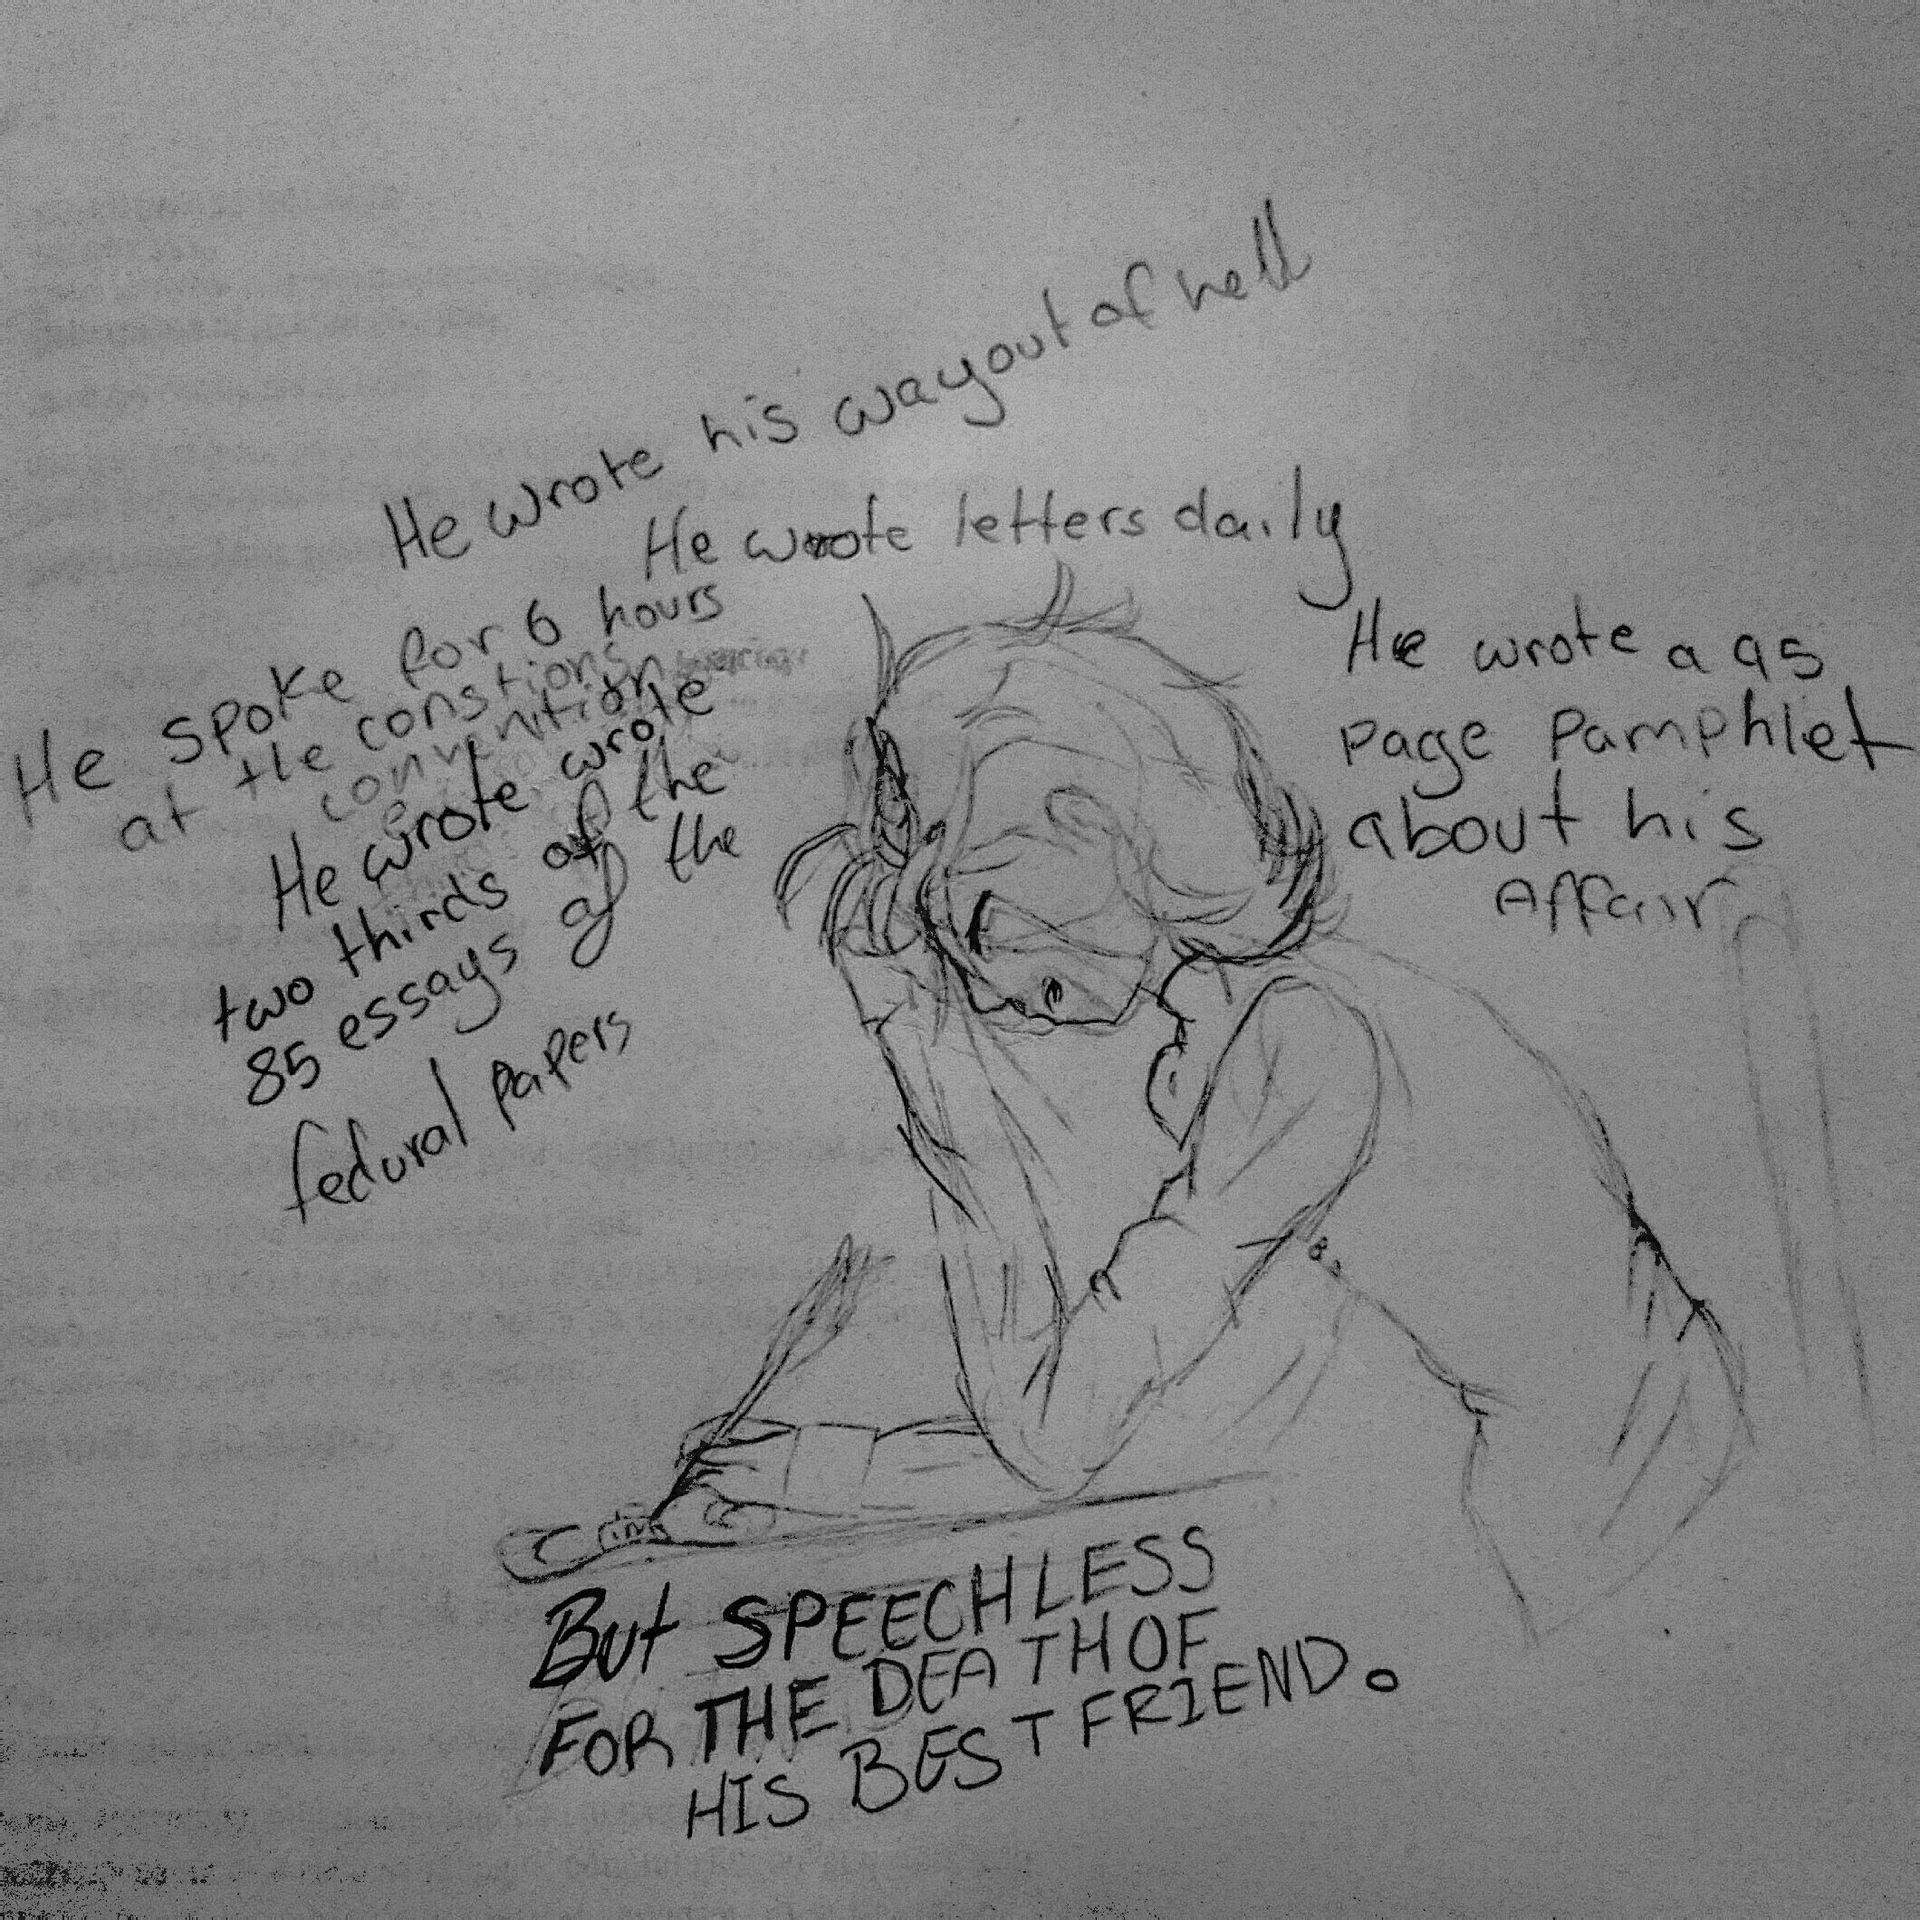 He wrote his way out of hell
He wrote letters daily
He spoke for 6 hours
at the constions
convenition
He wrote wrote
two thirds of the
85 essays of the
fedural papers
He wrote a 95
page pamphlet
about his
Affair
But SPEECHLESS
FOR THE DEATH OF
HIS BEST FRIEND.